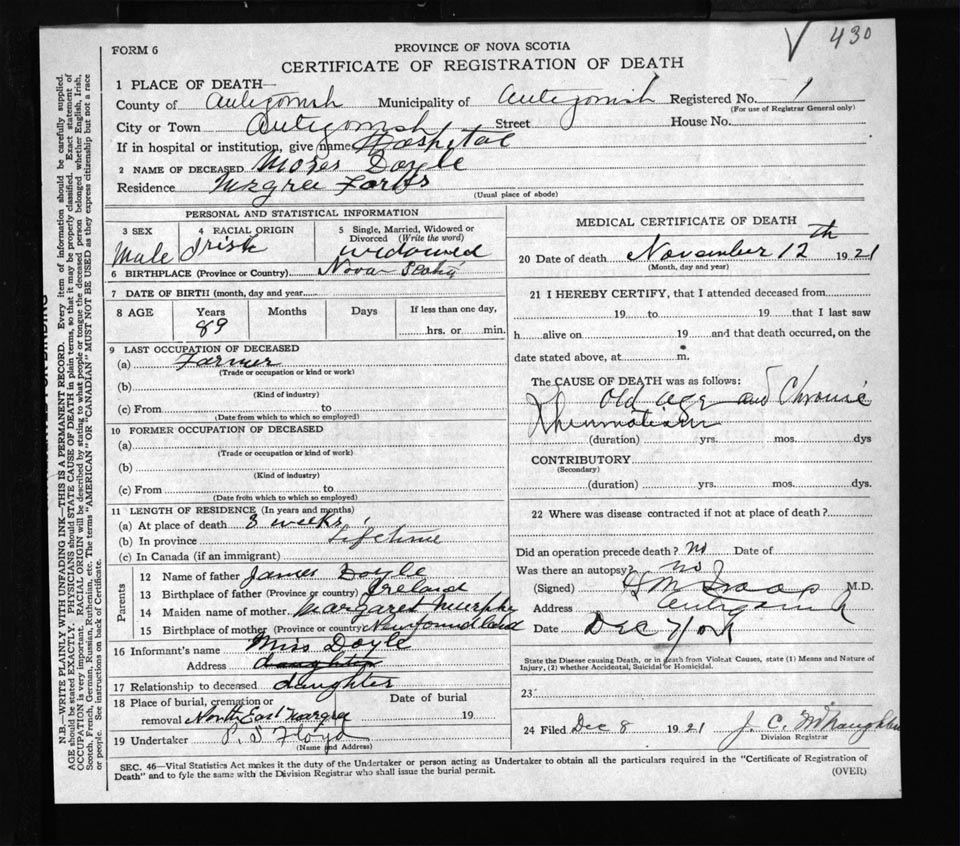 430
FORM 6
PROVINCE OF NOVA SCOTIA
CERTIFICATE OF REGISTRATION OF DEATH
1 PLACE OF DEATH—
County of Antigonish Municipality of Antigonish Registered No. 1
(For use of Registrar General only)
City or Town Antigonish Street House No.
If in hospital or institution, give name Hospital
2 NAME OF DECEASED Moses Doyle
Residence Margaree Forks
(Usual place of abode)
PERSONAL AND STATISTICAL INFORMATION
3 SEX 4 RACIAL ORIGIN 5 Single, Married, Widowed or Divorced (Write the word)
Male Irish widowed
6 BIRTHPLACE (Province or Country) Nova Scotia
7 DATE OF BIRTH (month, day and year)
8 AGE Years Months Days If less than one day,
89 hrs. or min.
9 LAST OCCUPATION OF DECEASED
(a) Farmer
(Trade or occupation or kind or work)
(b)
(Kind of industry)
(c) From to
(Date from which to which so employed)
10 FORMER OCCUPATION OF DECEASED
(a)
(Trade or occupation or kind or work)
(b)
(Kind of industry)
(c) From to
(Date from which to which so employed)
11 LENGTH OF RESIDENCE (In years and months)
(a) At place of death 3 weeks
(b) In province Lifetime
(c) In Canada (if an immigrant)
Parents
12 Name of father James Doyle
13 Birthplace of father (Province or country) Ireland
14 Maiden name of mother Margaret Murphy
15 Birthplace of mother (Province or country) Newfoundland
16 Informant's name Miss Doyle
Address daughter
17 Relationship to deceased daughter
18 Place of burial, cremation or Date of burial
removal North East Margree 19
19 Undertaker P. S Floyd
(Name and Address)
MEDICAL CERTIFICATE OF DEATH
20 Date of death November 12th 1921
(Month, day and year)
21 I HEREBY CERTIFY, that I attended deceased from
19 to 19 that I last saw
h alive on 19 and that death occurred, on the
date stated above, at m.
The CAUSE OF DEATH was as follows:
Old age and Chronic
Rheumatism
(duration) yrs. mos. dys
CONTRIBUTORY
(Secondary)
(duration) yrs. mos. dys.
22 Where was disease contracted if not at place of death?
Did an operation precede death? no Date of
Was there an autopsy? no
(Signed) M.D.
Address Antigonish
Date Dec
State the Disease causing Death, or in death from Violent Causes, state (1) Means and Nature of
Injury, (2) whether Accidental, Suicidal or Homicidal.
23
24 Filed Dec 8 1921 J. C.
Division Registrar
SEC. 46—Vital Statistics Act makes it the duty of the Undertaker or person acting as Undertaker to obtain all the particulars required in the "Certificate of Registration of
Death" and to fyle the same with the Division Registrar who shall issue the burial permit.
(OVER)
N.B.—WRITE PLAINLY WITH UNFADING INK—THIS IS A PERMANENT RECORD. Every item of information should be carefully supplied.
AGE should be stated EXACTLY. PHYSICIANS should STATE CAUSE OF DEATH in plain terms, so that it may be properly classified. Exact statement of
OCCUPATION is very important. RACIAL ORIGIN will be described by stating to what people or tongue the deceased person belonged whether English, Irish,
Scotch, French, German, Russian, Ruthenian, etc. The terms "AMERICAN" OR "CANADIAN" MUST NOT BE USED as they express citizenship but not a race
or people. See instructions on back of Certificate.